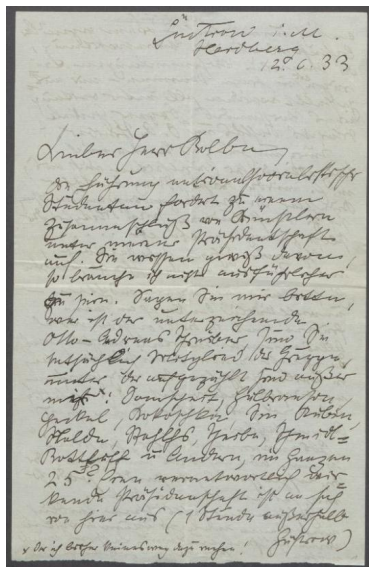 Güstrow i. M.
Heidberg
12. 6. 33
Lieber Herr Kolbe,
die Führung nationalsozialistischer
Studenten fordert zu einem
Zusammenschluß von Künstlern
unter meiner Präsidentschaft
auf. Sie wissen gewiß davon,
so brauche ich nicht ausführlicher
zu sein. Sagen Sie mir bitte,
wer ist der unterzeichnende
Otto-Andreas Schreiber, sind Sie
tatsächlich Mitglied der Gruppe,
unter der aufgezählt sind außer
Heckel, Kokoschka,
Nolde, Rohlfs, Scheibe, Schmidt-
Rottluff u Andern, im Ganzen
25. Eine verantwortlich wir-
kende Präsidentschaft ist an sich
von hier aus (1 Stunde außerhalb
Güstrow)